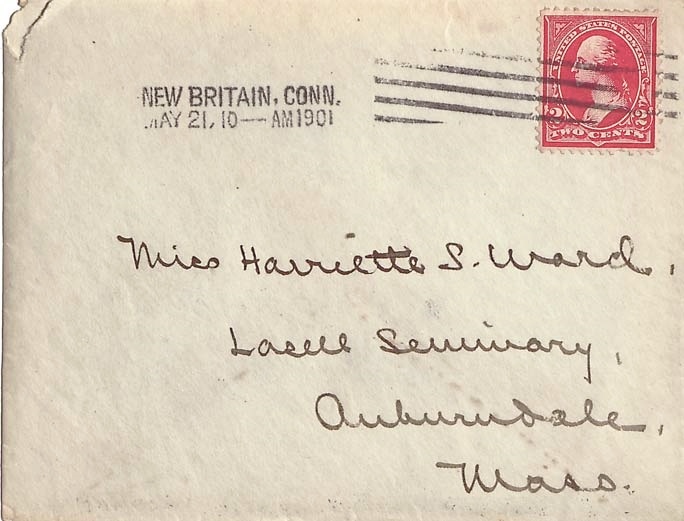 UNITED STATES POSTAGE
2 2
TWO CENTS
NEW BRITAIN, CONN.
MAY 21, 10— AM 1901
Miss Harriette S. Ward,
Lasell Seminary,
Auburndale,
Mass.